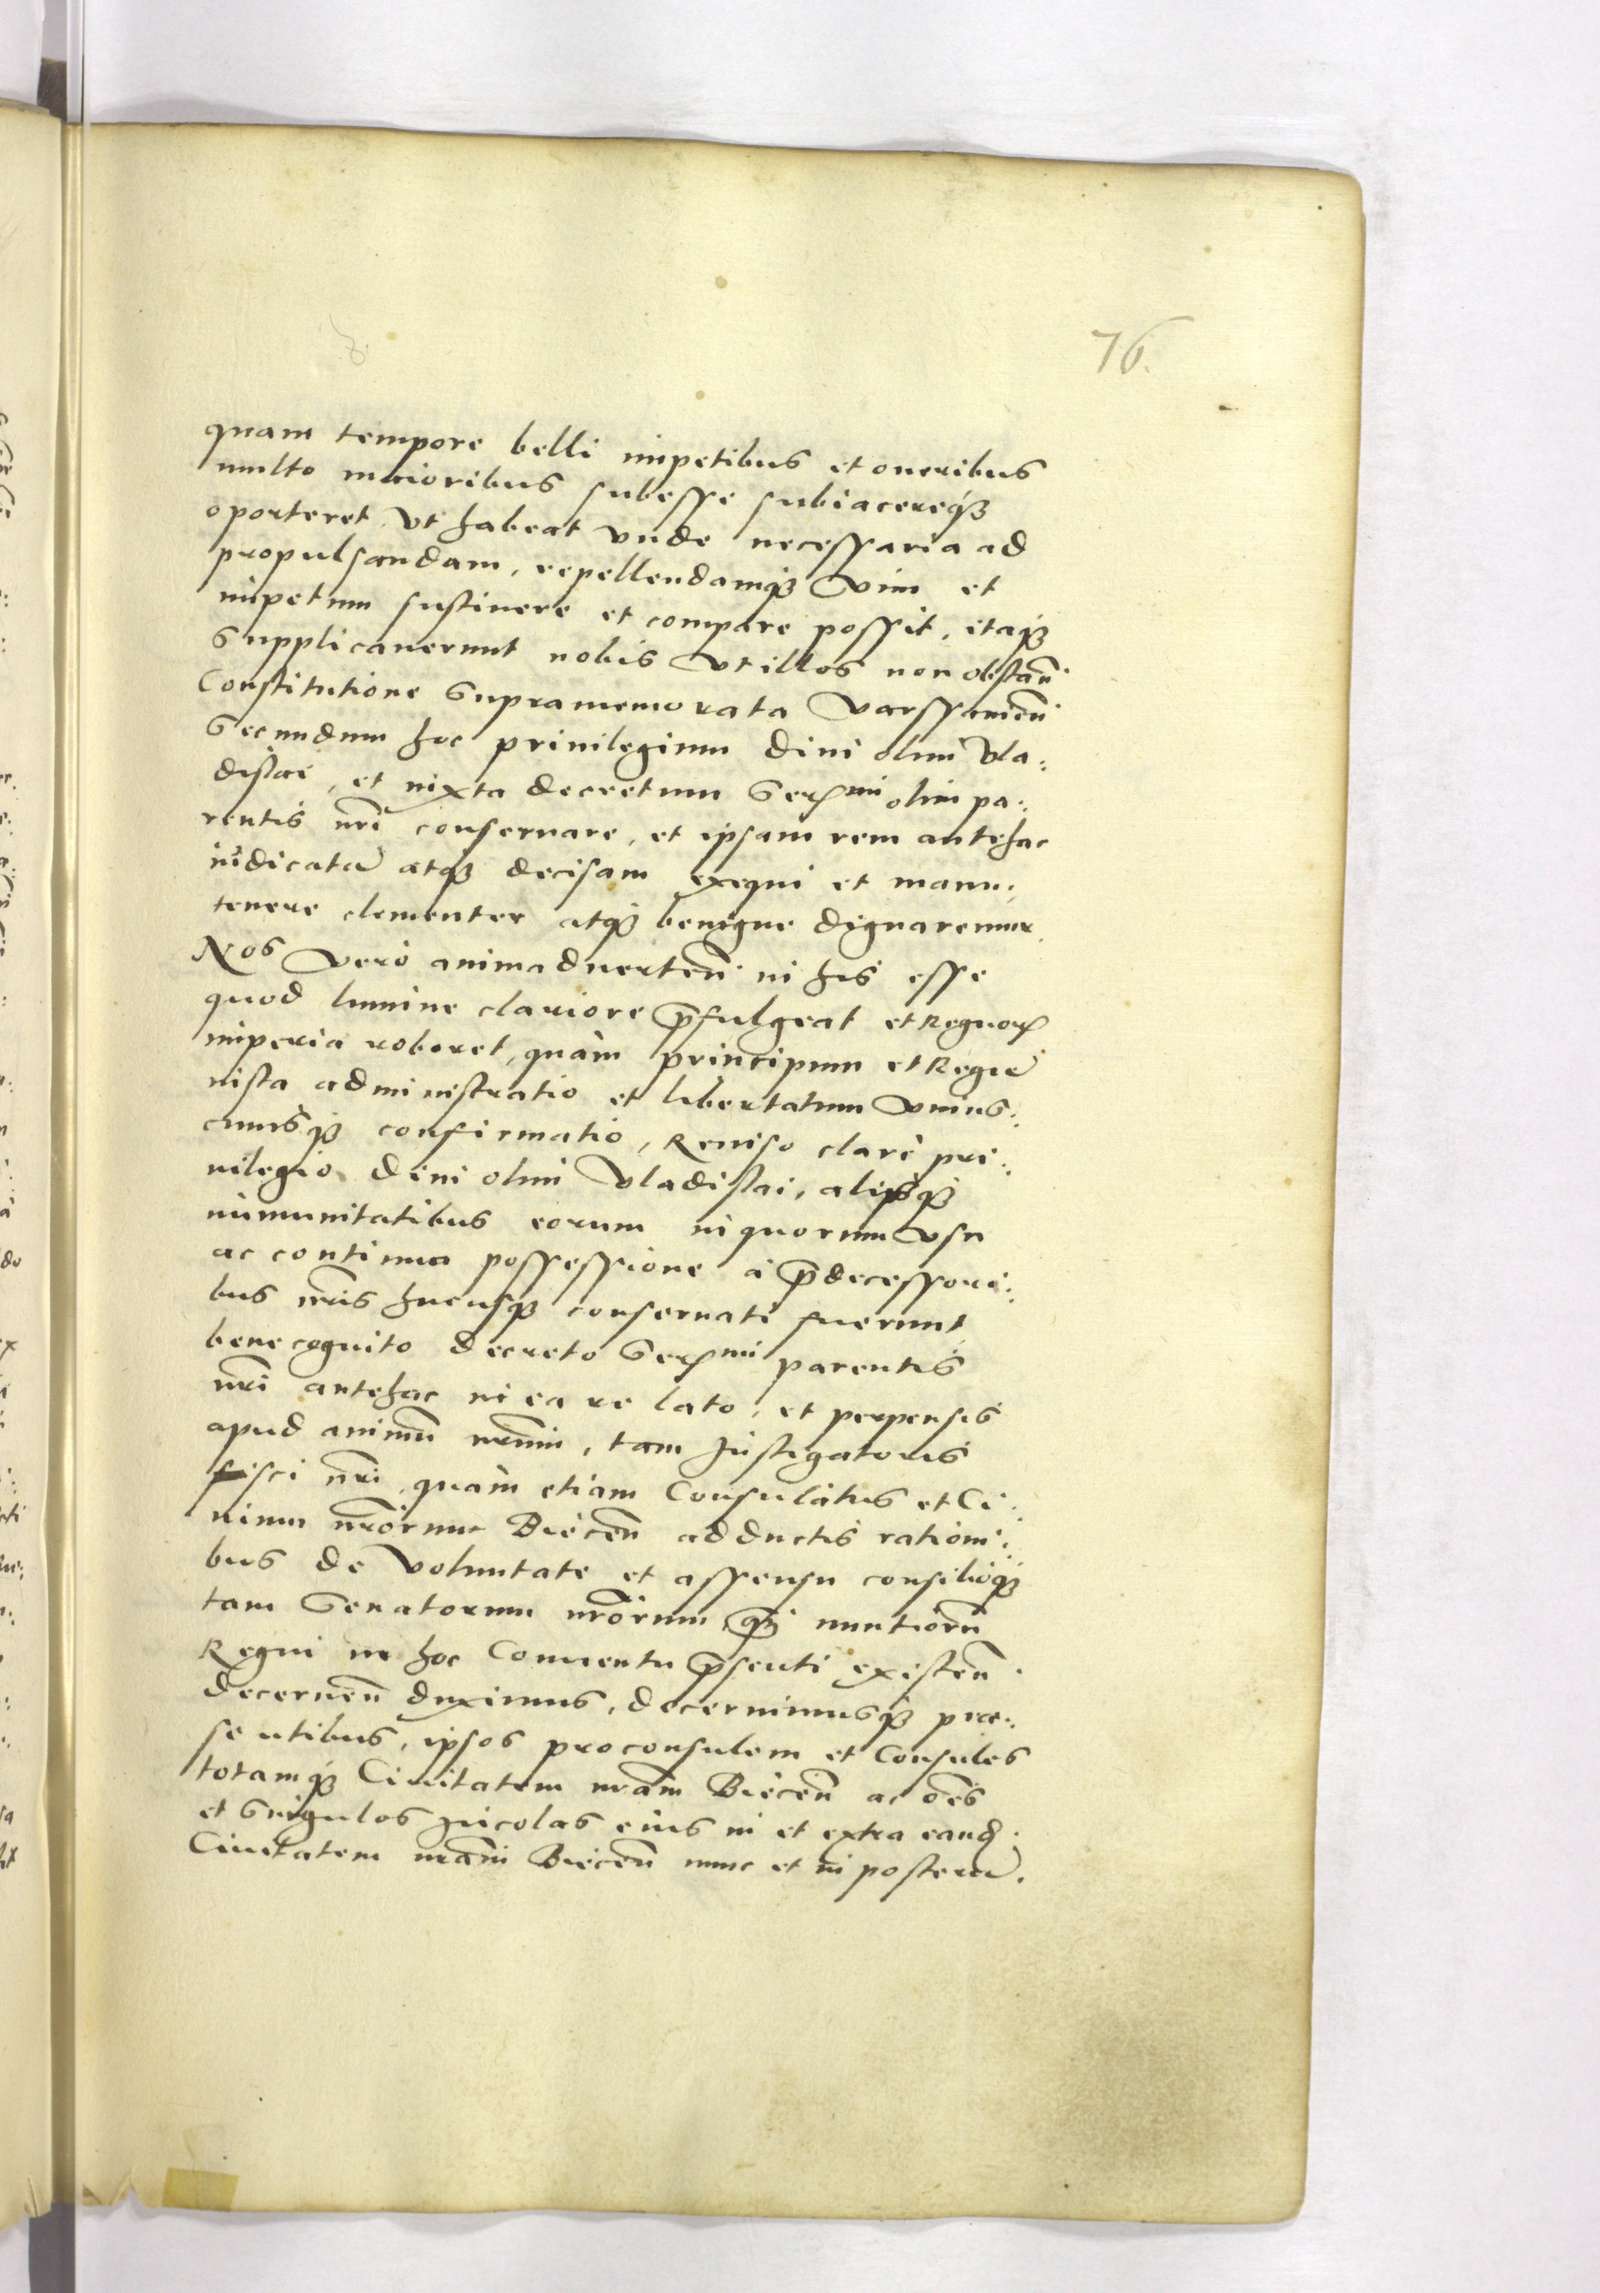 76.
quam tempore belli impetibus et oneribus
multo maioribus subesse subiacereqȝ
oporteret, Vt habeat Vnde necessaria ad
propulsandam, repellendamqȝ Vim et
impetum sustinere et compare possit, itaqȝ
Supplicauerunt nobis Vt illos non obstañ.
Constitutione Supramemorata Varssauieñ
Secundum hoc priuilegium Diui olim Vla:
dislai, et iuxta decretum Serꝫmi olim pa:
rentis nri̅ conseruare, et ipsam rem antehac
iudicatā atqȝ decisam exequi et manu:
tenere clementer atqȝ benigne dignaremur.
Nos Vero animaduerteñ. in his esse
quod lumine clariore p̅fulgeat et Regnorꝫ
imperia roboret, quàm principum et Regū
iusta administratio et libertatum Vnius:
cuiusqȝ confirmatio, Reuiso claré pri:
uilegio Diui olim Vladislai, alijsqȝ
immunitatibus eorum in quorum Vsu
ac continua possessione à p̅decessori:
bus nri̅s hucusqȝ conseruati fuerunt,
bene cognito Decreto Serꝫmi parentis
nri̅ antehac in ea re lato, et perpensis
apud animū nr̅um, tam Instigatoris
fisci nri̅, quàm etiam Consulatus et Ci:
uium nr̅orum Biéceñ adductis rationi:
bus de Voluntate et assensu consilioqȝ
tam Senatorum nr̅orum, qȝ̅ nuntiorū
Regni in hoc Conuentu p̅senti existeñ.
decerneñ duximus, decernimusqȝ prae:
sentibus, ipsos proconsulem et Consules
totamqȝ Ciuitatem nr̅am Biéceñ ac oe̅s
et Singulos Incolas eius in et extra eand.
Ciuitatem nr̅am Biéceñ nunc et in posterū.